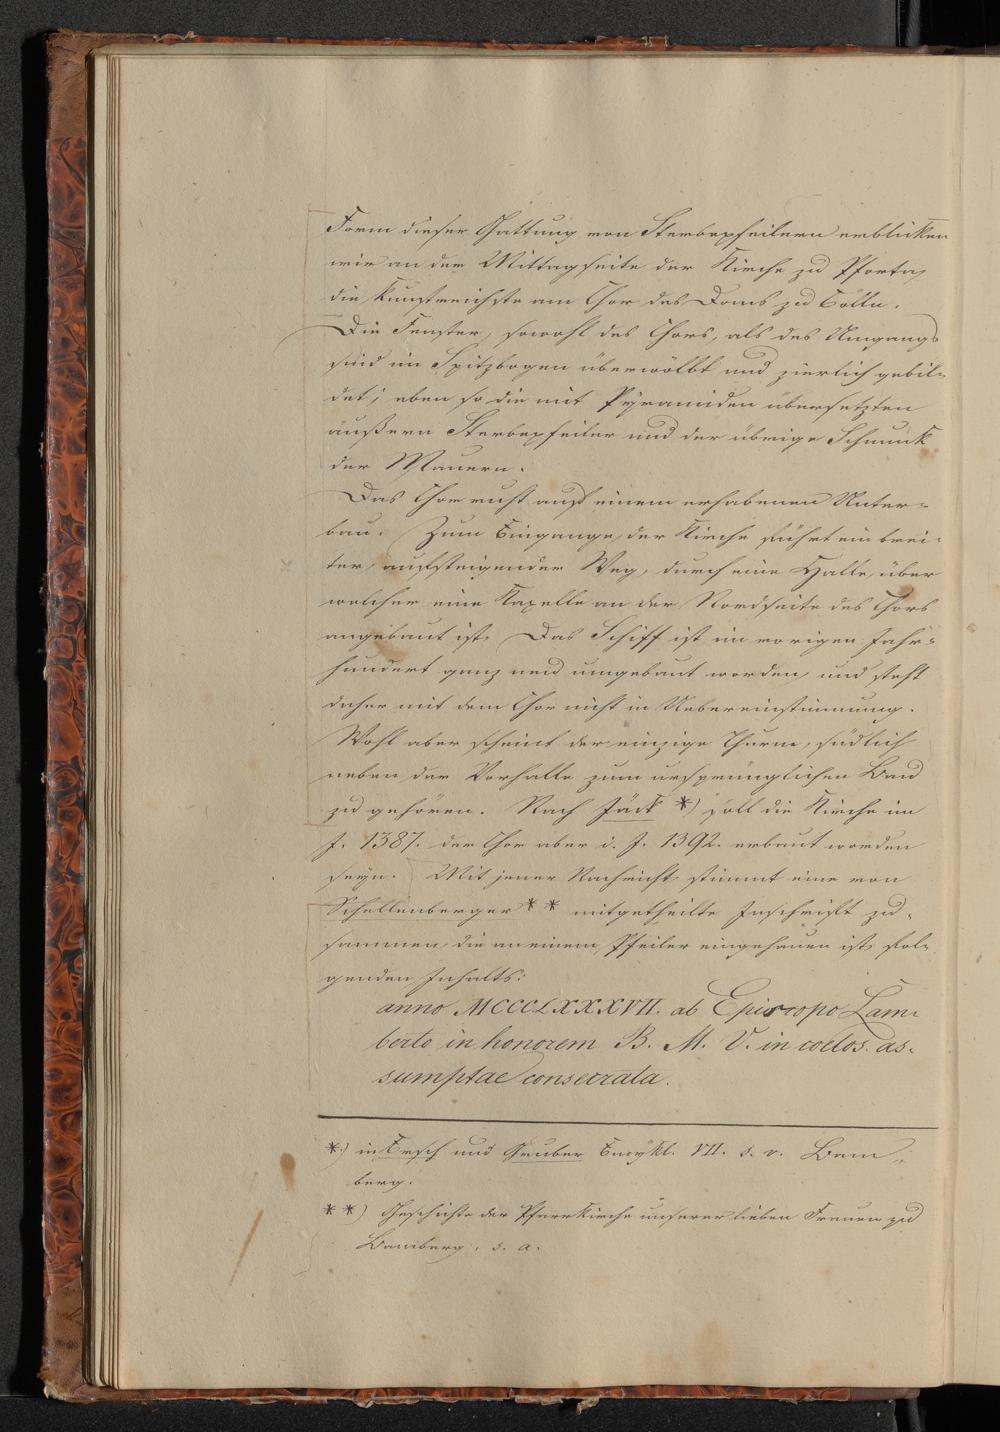 Form dieser Gattung von Strebepfeilern erblicken
wir an der Mittagseite der Kirche zu Pforta,
die kunstreichste am Chor des Doms zu Cölln.
Die Fenster, sowohl des Chors, als des Umgangs
sind im Spitzbogen überwölbt und zierlich gebil-
det; eben so die mit Pyramiden übersetzten
äußern Strebepfeiler und der übrige Schmuck
der Mauern.
Das Chor ruht auf einem erhabenen Unter-
bau. Zum Eingange der Kirche führt ein brei-
ter, aufsteigender Weg, durch eine Halle, über
welcher eine Kapelle an der Nordseite des Chors
angebaut ist. Das Schiff ist im vorigen Jahr-
hundert ganz neu umgebaut worden, und steht
daher mit dem Chor nicht in Uebereinstimmung.
Wohl aber scheint der einzige Thurm, südlich
neben der Vorhalle zum ursprünglichen Bau
zu gehören. Nach Jäck *) soll die Kirche im
J. 1387. der Chor aber i. J. 1392. erbaut worden
seyn. Mit jener Nachricht stimmt eine von
Schellenberger ** mitgetheilte Inschrift zu-
sammen, die an einem Pfeiler eingehauen ist, fol-
genden Inhalts:
anno MCCCLXXXVII. ab Episcopo Lam-
berto in honorem B. M. V. in coelos as-
sumptae consecrata.
*) in Ersch und Gruber Encykl. VII. s. v. Bam-
berg.
**) Geschichte der Pfarrkirche unserer lieben Frauen zu
Bamberg. s. a.